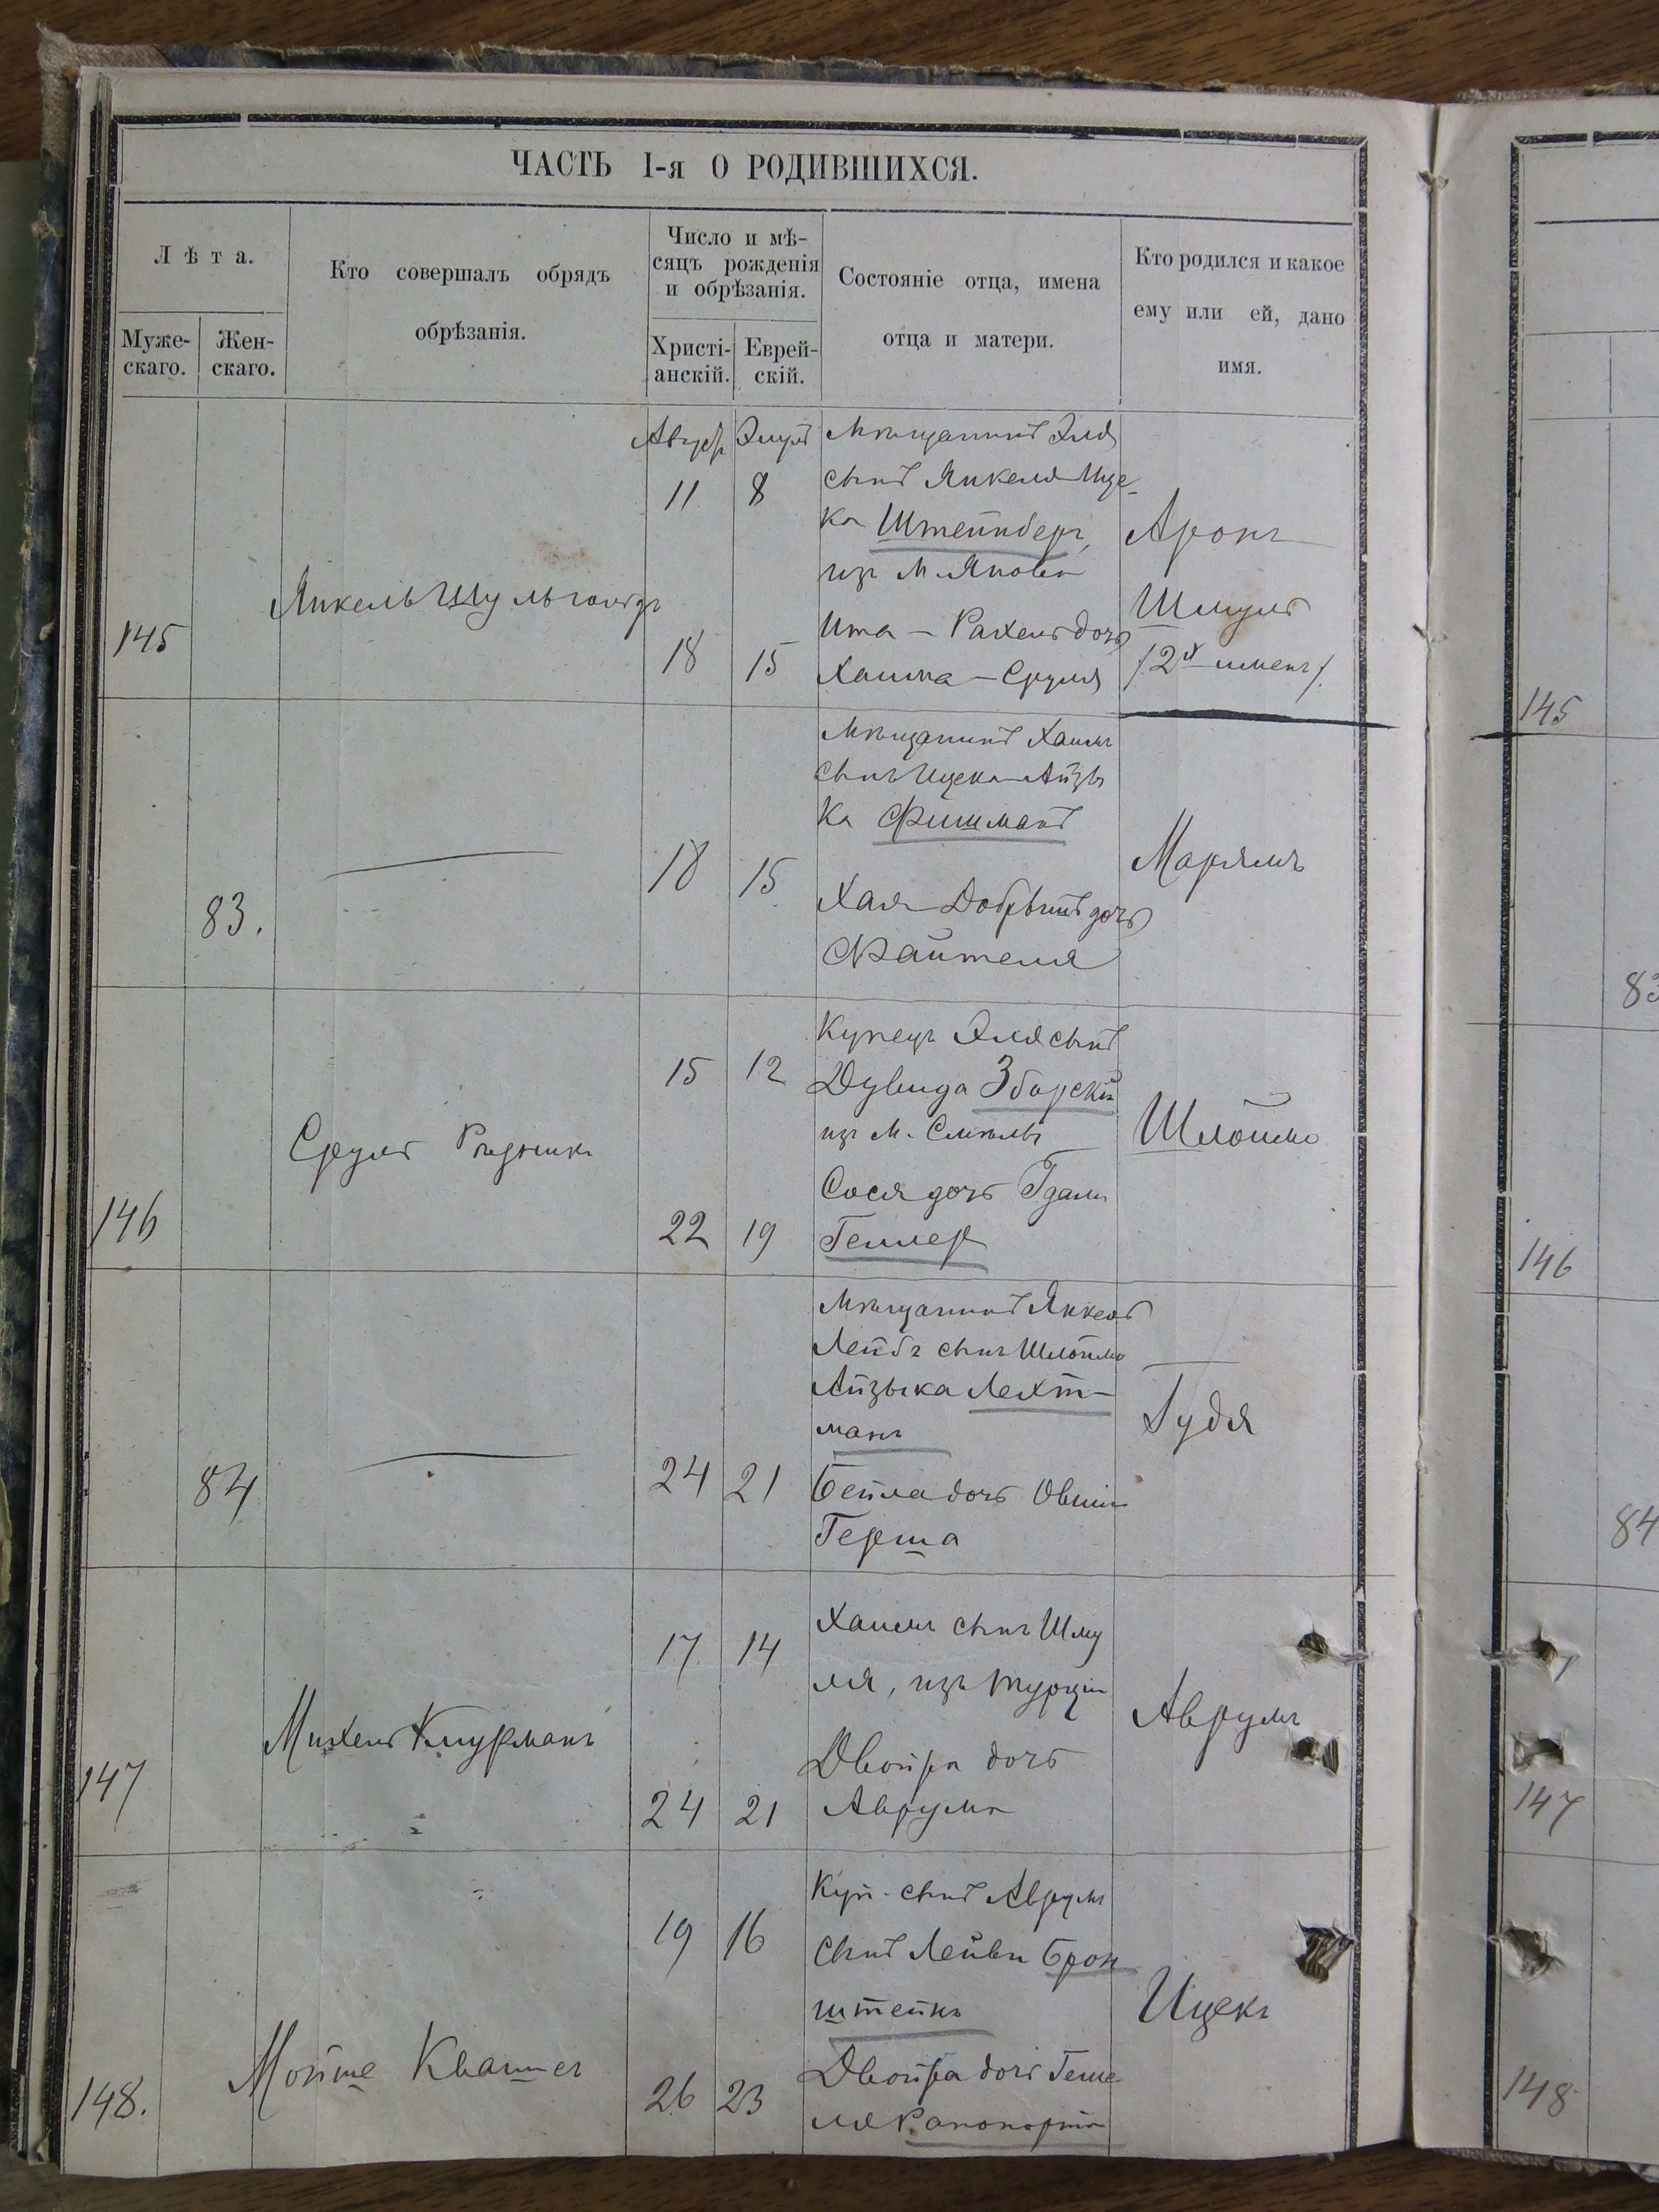 ЧАСТЬ I-я О РОДИВШИХСЯ.
Лѣта.
Муже-
скаго.
Жен-
скаго.
Кто совершалъ обрядъ
обрѣзанія.
Число и мѣ-
сяцъ рожденія
и обрѣзанія.
Христі-
анскій.
Еврей-
скій.
Состояніе отца, имена
отца и матери.
Кто родился и какое
ему или ей, дано
имя.
145
Янкель
Август Элулъ
11 8
18 15
Мѣщанинъ Эля
сынъ Янкеля Ице-
ка Штейнберг,
изъ м. Янова
Ита - Рахель дочь
Хаима - Сруля
Аронъ
Шмуль
83.
18 15
Мѣщанинъ Хаимъ
сынъ Ицека Айзы
ка Фишманъ
Хая Добрышъ дочь
Файтеля
Марямъ
146
Сруль
15 12
22 19
Купецъ Эля сынъ
Дувида Збарскій
из м.
Сося дочь Гдали
Геллер
Шлойме
84
24 21
Мѣщанинъ Янкель
Лейбъ сынъ Шлойме
Айзыка Лехт-
манъ
Бейла дочь Овшія
Герша
Гудя
147
Михель
17 14
24 21
Хаимъ сынъ Шму
ля, изъ Турціи
Двойра дочь
Аврума
Аврумъ
148.
Мойше
19 16
26 23
Куп. сынъ Аврумъ
сынъ Лейви Брон
штейнъ
Двойра дочь Геше
ля Рапопорта
Ицекъ
145
83
146
84
147
148